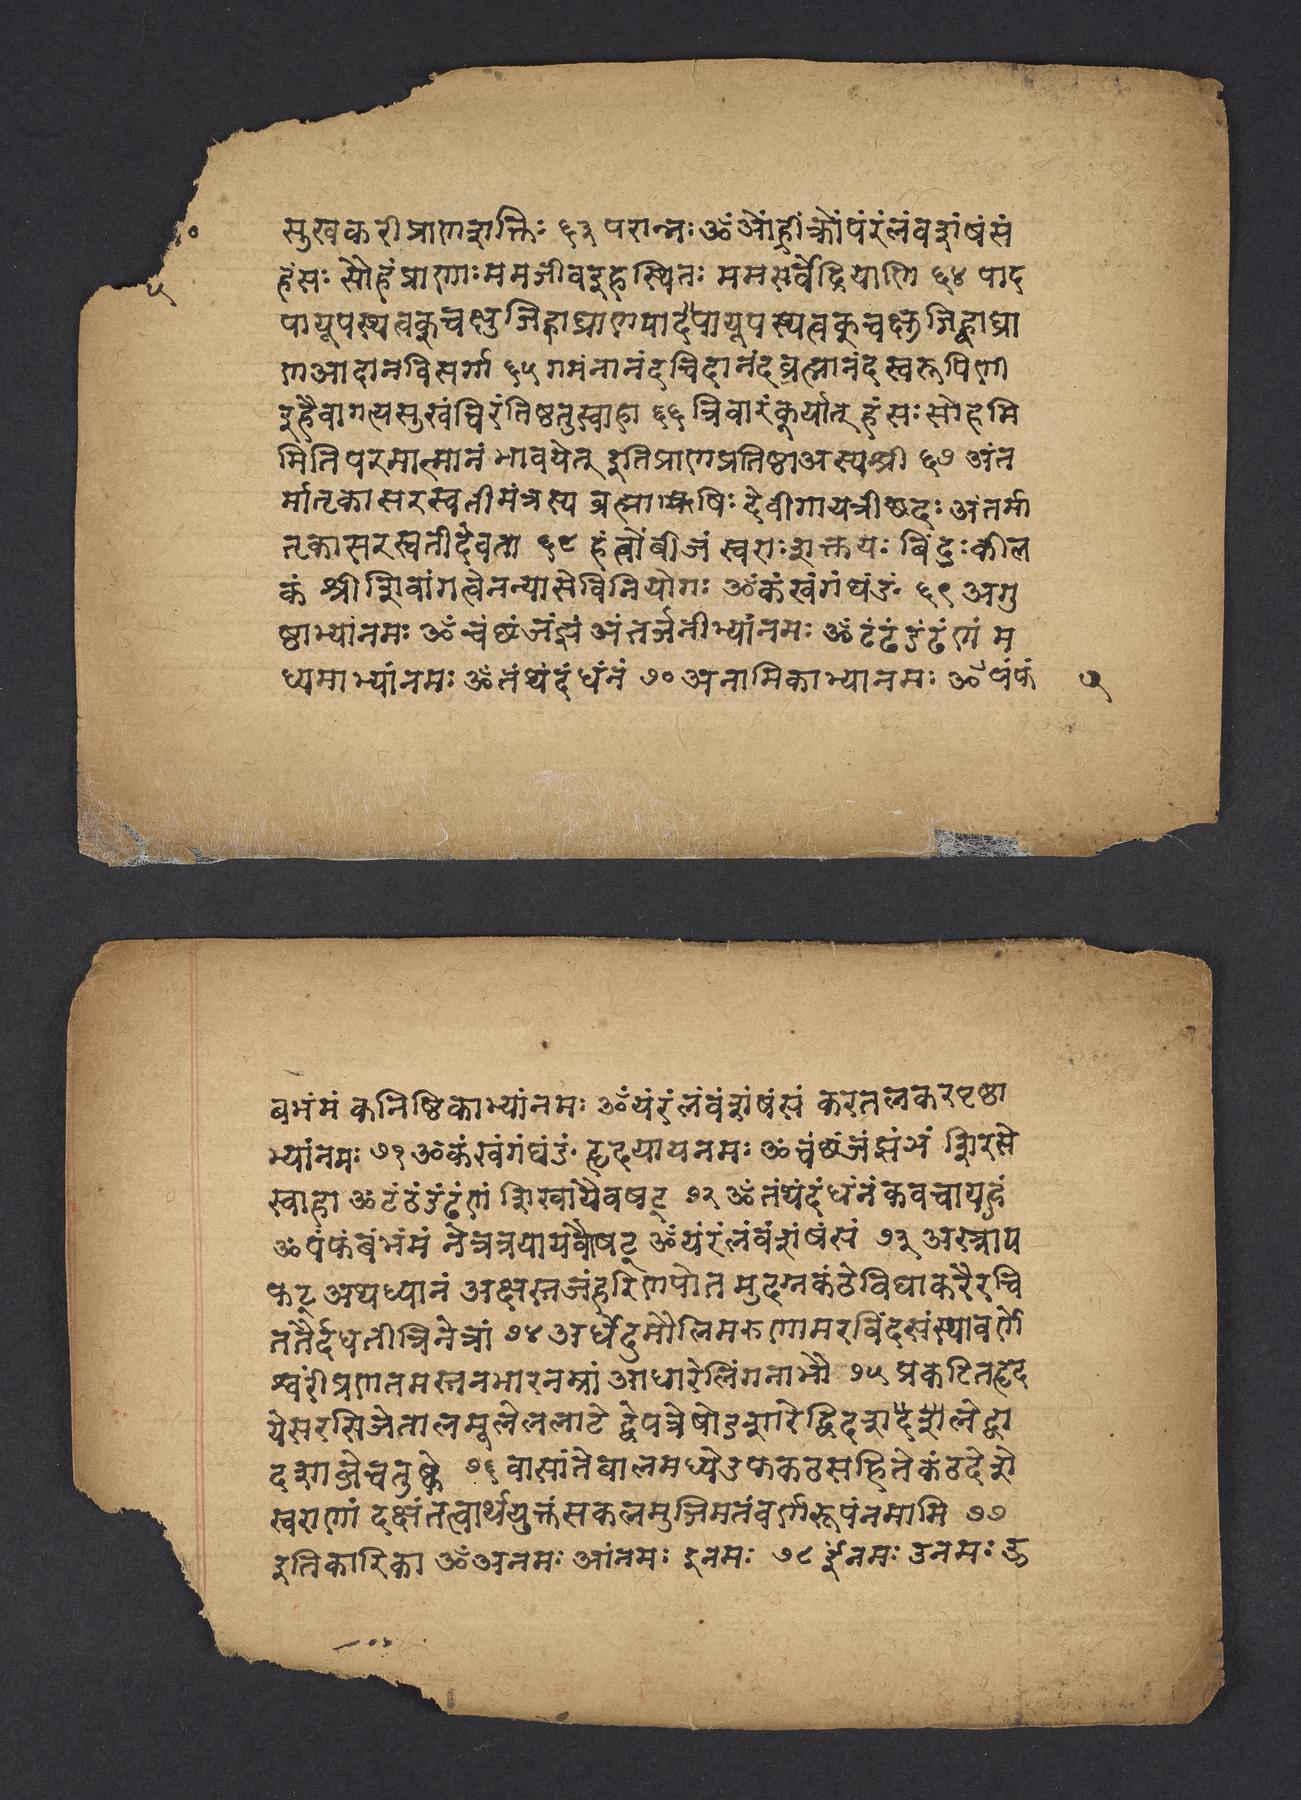 सुखकरी प्राणशक्तिः ६३ परान्नः ॐ आं ह्रीं क्रों यं रं लं वं शं षं सं
हंसः सोहं प्राणाः मम जीव इह स्थितः मम सर्वेंद्रियाणि ६४ पाद
पायूपस्थत्वक्चक्षुजिह्वाघ्राणपादपायूपस्थत्वक्चक्षुजिह्वाघ्रा
णआदानविसर्गा ६५ गमनानंदचिदानंदब्रह्मानंदस्वरूपिणी
इहैवागत्यसुखंचिरंतिष्ठतुस्वाहा ६६ त्रिवारंकुर्यात् हंसः सोहमि
मिति परमात्मानं भावयेत् इतिप्राणप्रतिष्ठाअस्यश्री ६७ अंत
र्मातृकासरस्वतीमंत्रस्य ब्रह्माऋषिः देवीगायत्रीछदः अंतर्मा
तृकासरस्वतीर्देवता ६८ हं बीजं स्वराः शक्तयः बिंदुः कील
कं श्रीशिवांगत्वेनन्यासेविनियोगः ॐ कं खं गं घं ङं ६९ अगु
ष्ठाभ्यांनमः ॐ चं छं जं झं ञं तर्जनीभ्यांनमः ॐ टं ठं डं ढं णं म
ध्यमाभ्यांनमः ॐ तं थं दं धं नं ७० अनामिकाभ्यानमः ॐ पं फं
५
बभंमं कनिष्ठिकाभ्यांनमः ॐ यं रं लं वं शं षं सं करतलकरपृष्ठा
भ्यांनमः ७१ ॐ कं खं गं घं ङं हृदयायनमः ॐ चं छं जं झं ञं शिरसे
स्वाहा ॐ टं ठं डं ढं णं शिखायैवषट् ७२ ॐ तं थं दं धं नं कवचायहुं
ॐ पं फं बं भं मं नेत्रत्रयायवौषट् ॐ यं रं लं वं शं षं सं ७३ अस्त्राय
फट् अथध्यानं अक्षस्रजंहरिणपोतमुदग्रकंठेविद्याकरैरचि
ततैर्दधतींत्रिनेत्रां ७४ अर्धेंदुमौलिमरुणामरविंदसंस्थावर्णे
श्वरींप्रणतमस्तनभारनम्रां आधारेलिंगनाभौ ७५ प्रकटितहृद
येसरसिजेतालमूलेललाटे द्वेपत्रेषोडशारेद्विदशदशदलेद्वा
दशार्द्धेचतुष्के ७६ वासांतेबालमध्येडफकठसहितेकंठदेशे
स्वराणां दक्षंतत्वार्थयुक्तंसकलमुजिमतंवर्णरूपंनमामि ७७
इतिकारिका ॐ अनमः आंनमः इनमः ७८ ईंनमः उनमः ऊ